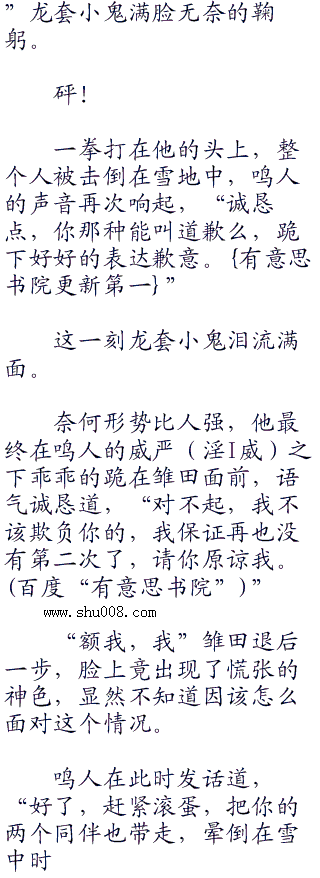 ”龙套小鬼满脸无奈的鞠
躬。
砰！
一拳打在他的头上，整
个人被击倒在雪地中，鸣人
的声音再次响起，“诚恳
点，你那种能叫道歉么，跪
下好好的表达歉意。{有意思
书院更新第一}”
这一刻龙套小鬼泪流满
面。
奈何形势比人强，他最
终在鸣人的威严（淫I威）之
下乖乖的跪在雏田面前，语
气诚恳道，“对不起，我不
该欺负你的，我保证再也没
有第二次了，请你原谅我。
(百度“有意思书院”)”
www.shu008.com
“额我，我”雏田退后
一步，脸上竟出现了慌张的
神色，显然不知道因该怎么
面对这个情况。
鸣人在此时发话道，
“好了，赶紧滚蛋，把你的
两个同伴也带走，晕倒在雪
中时